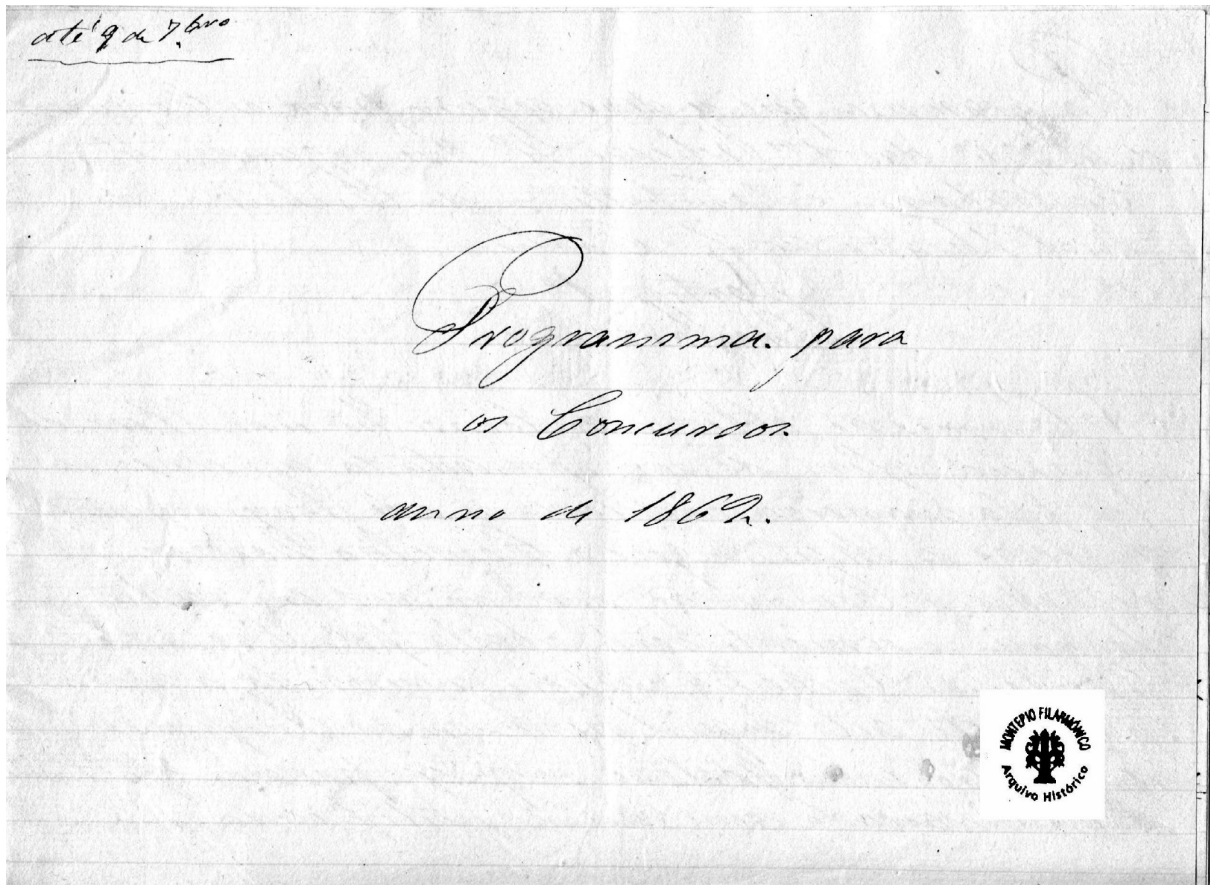 até 9 de 7bro
Programma para
os Concursos
anno de 1862.
MONTEPIO FILARMÓNICO
Arquivo Histórico